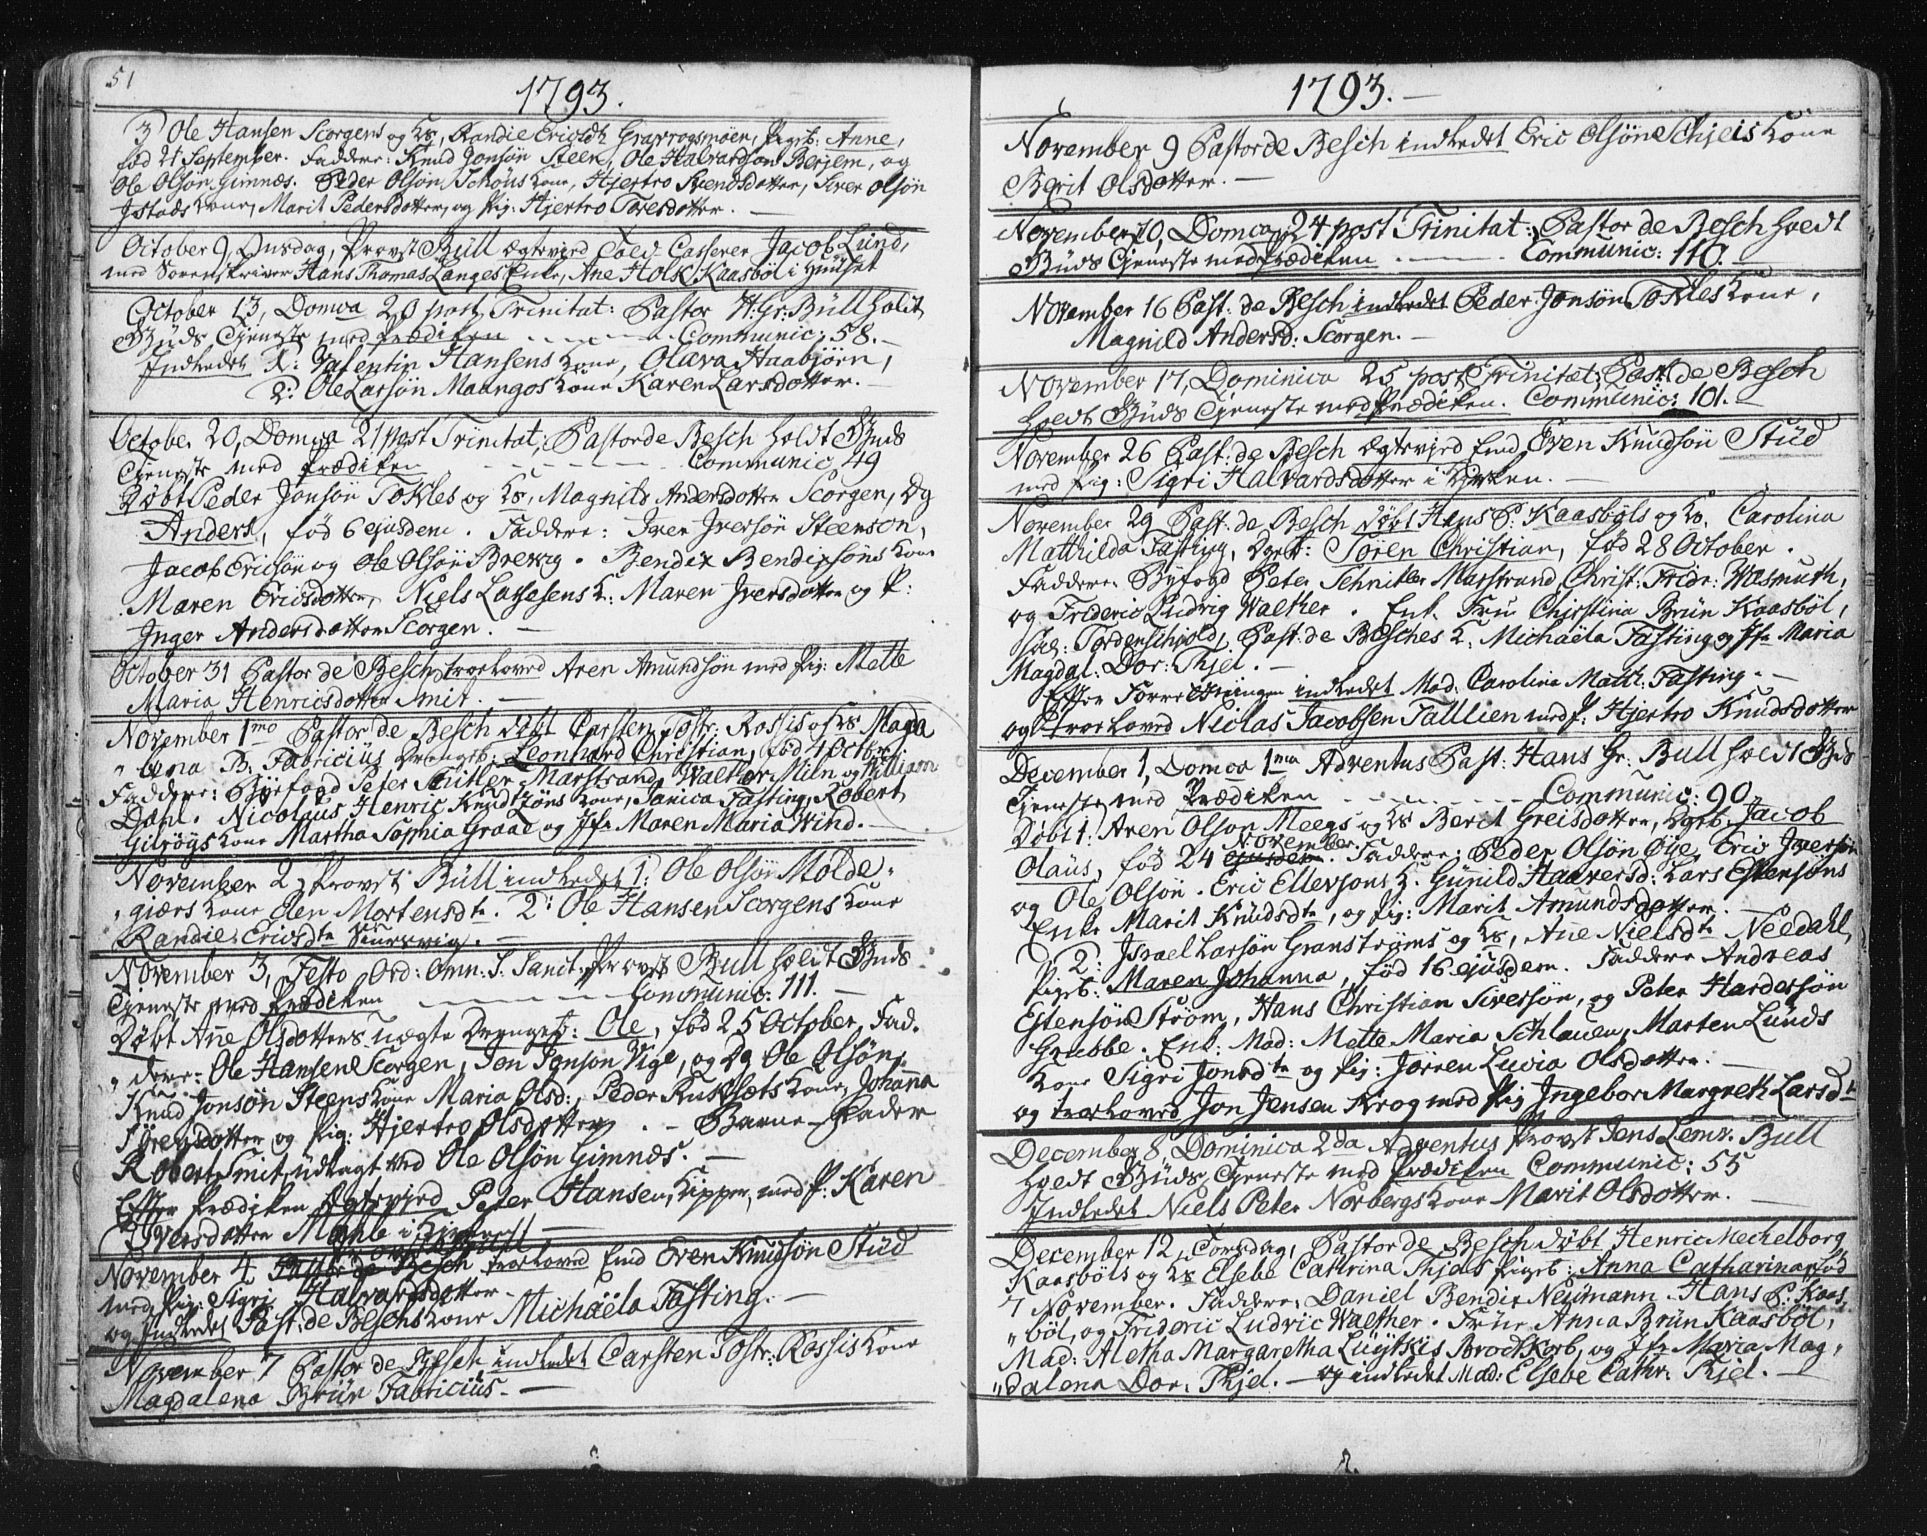 51
1793.
3) Ole Hansen Scorgens og Hs, Randie Ericsdr Graxrogsmoen, Pigeb: Anne,
fød 21 September. Faddere: Knud Jonsøn Steen, Ole Halvardsøn Berjem, og
Ole Olsøn Gimnæs. Peder Olsøn Schous Kone, Hjertro Svendsdotter, Siver Olsøn
Jstads Kone, Marit Pedersdotter, og Pig: Hjertro Toresdotter.
October 9, Onsdag, Provst Bull ægtevjed Told Casserer Jacob Lund,
med Sorenskriver Hans Thomas Langes Enke, Ane Holk Kaasbøl i Huuset
October 13, Domca 20 post Trinitat: Pastor H: Gr: Büll holdt
Guds Tjeneste med Prædiken Communic: 58.
Indledet 1: Valentin Hansens Kone, Olava Haabjørn,
2: Ole Larsøn Maangos Kone Karen Larsdotter.
October 20, Domca 21 post Trinitat, Pastor de Besch holdt Guds
Tjeneste med Prædiken Communic, 49
Døbt Peder Jonsøn Tokles og Hs, Magnild Andersdotter Scorgen, Dg
Anders, fød 6 ejusdem. Faddere: Iver Jversøn Steenson,
Jacob Ericsøn og Ole Olsøn Brevig. Bendix Bendixsøns Kone
Maren Ericsdotter, Niels Lassesens K: Maren Jversdotter og P:
Inger Andersdotter Scorgen.
October 31 Pastor de Besch troloved Aren Amundsøn med Pig: Mette
Maria Henricsdotter Smit.
November 1mo Pastor de Besch døbt Carsten Tostr: Rossis og Hs Magda
"lena B. Fabriciüs Drengeb: Leonhard Christian, fød 4 Octbr.
Faddere: Byefogd Peter Snitler Marstrand, Walter Miln og William
Dahl. Nicolaus Henric Knudtzøns Kone, Janica Fasting, Robert
Gilroys Kone Martha Sophia Graae og Jfr Maren Maria Wind.
November 2, Provst Büll indledet 1: Ole Olsøn Molde"
"giærs Kone Elen Mortensdtr. 2: Ole Hansen Scorgens Kone
Randie Ericsdtr
November 3, Festo Ord: Omn: S. Sanct: Provst Bull holdt Guds
Tjeneste med Prædiken Communic: 111.
Døbt Ane Olsdotters uægte Drengeb: Ole, fød 25 October. Fad.
"dere: Ole Hansen Scorgen, Jon Jonson Vige, og Dg Ole Olsøn,
Knud Jonsøn Steens Kone Maria Olsd:, Peder Kuskjets Kone, Johanna
Sørensdotter og Pig: Hjertro Olsdotter. Barne-Fader
Robert Smit, udlagt ved Ole Olsøn Gimnæs.
Efter Prædiken Ægtevjed Peter Hansen, Kipper, med P: Karen
Iversdotter Mæhle i Kirken
November 4 Past: de Besch Provst Bull trolovid Emd Even Knudsøn Stüd
med Pig: Sigri Halvarsdotter.
og Indledet Past: de Beschs Kone Michaëla Fasting.
November 7 Pastor de Besch indledet Carsten Tostr: Rossis Kone
Magdalena Brün Fabriciüs.
1793.
November 9 Pastor de Besch indledet Eric Olsøn Schjeis Kone
Berit Olsdotter.
November 10, Domca 24 post Trinitat: Pastor de Besch holdt
Guds Tjeneste med Prædiken Communic: 110.
November 16 Past: de Besch indledet Peder Jonsøn Tokles Kone,
Magnild Andersd: Scorgen.
November 17, Dominica 25 post Trinitat, Past: de Besch
holdt Guds Tjeneste med Prædiken. Communic: 101.
November 26 Past: de Besch ægtevjed Emd Even Knudsøn Stüd
med Pig: Sigri Halvardsdotter i Kirken.
November 29 Past: de Besch døbt Hans P: Kaasbøls og Ko. Carolina
Mathilda Fasting, Dgeb: Søren Christian, fød 28 October.
Faddere: Byfogd Peter Schnitler Marstrand, Christ: Fridr: Wasmuth,
og Frideric Ludvig Walther. Enk. Fru Christina Brün Kaasbøl,
fød: Tordenschiold, Past: de Besches K. Michaëla Fasting og Jfr Maria
Magdal: Dor: Thjel.
Efter Forretningen indledet Mad: Carolina Math: Fasting.
og trolovid Niclas Jacobsen Tallien med P: Hjertro Knudsdotter
December 1, Domca 1ma Adventus Past: Hans Gr: Bull holdt Guds
Tjeneste med Prædiken Communic: 90
Døbt 1: Aren Olson Meegs og Hs Berit Greisdotter, Dgeb: Jacob
Olaüs, fød 24 ejusdem November. Faddere: Peder Olsøn Øye, Eric Jversøn
og Ole Olsøn. Eric Ellevsøns K. Günild Haaversd: Lars Estensøns
Enke Marit Knüdsdtr, og Pig: Marit Amundsdotter.
2: Jsrael Larsøn Granstrøms og Hs, Ane Nielsdtr Needahl,
Pigeb: Maren Johanna, fød 16 ejusdem. Faddere Andreas
Estensøn Strøm, Hans Christian Siversøn, og Peter Hardersøn
Grubbe. Enk: Mad: Mette Maria Schlauen, Marten Lunds
Kone Sigri Jonsdtr og Pig: Jørren Lucia Olsdotter.
og trolovid Jon Jensen Krog med Pig Ingebor Margreth Larsdtr
December 8, Dominica 2da Adventus Provst Jens Lemv. Bull
holdt Guds Tjeneste med Prædiken Communic: 55
Indledet Niels Peter Norbergs Kone Marit Olsdotter.
December 12, Torsdag, Pastor de Besch døbt Henric Mechelborg
Kaasbøls og Hs Elsebe Cathrina Thjels Pigeb: Anna Catharina, fød
7 November. Faddere: Daniel Bendix Neümann. Hans P: Kaas,
"bøl, og Frideric Ludvic Walther. Frue Anna Brün Kaasbøl,
Mad: Aletha Margaretha Lüytkis Brodtkorb, og Jfr Maria Mag"
"dalena Dor: Thjel. og indledet Mad: Elsebe Cathr: Thjel.